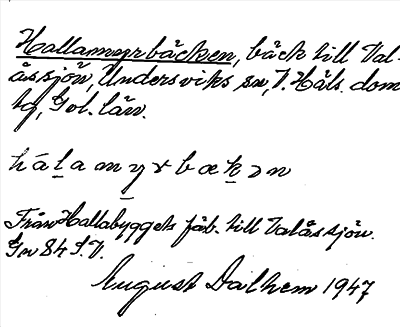 Hallamyrbäcken, bäck till Val-
åssjön, Undersviks sn, V. Häls. dom
tg, Gvl. län.
hálamyrbækən
Från Hallabyggets fäb. till Valåssjön.
Gv 84 S.V.
August Dalhem 1947